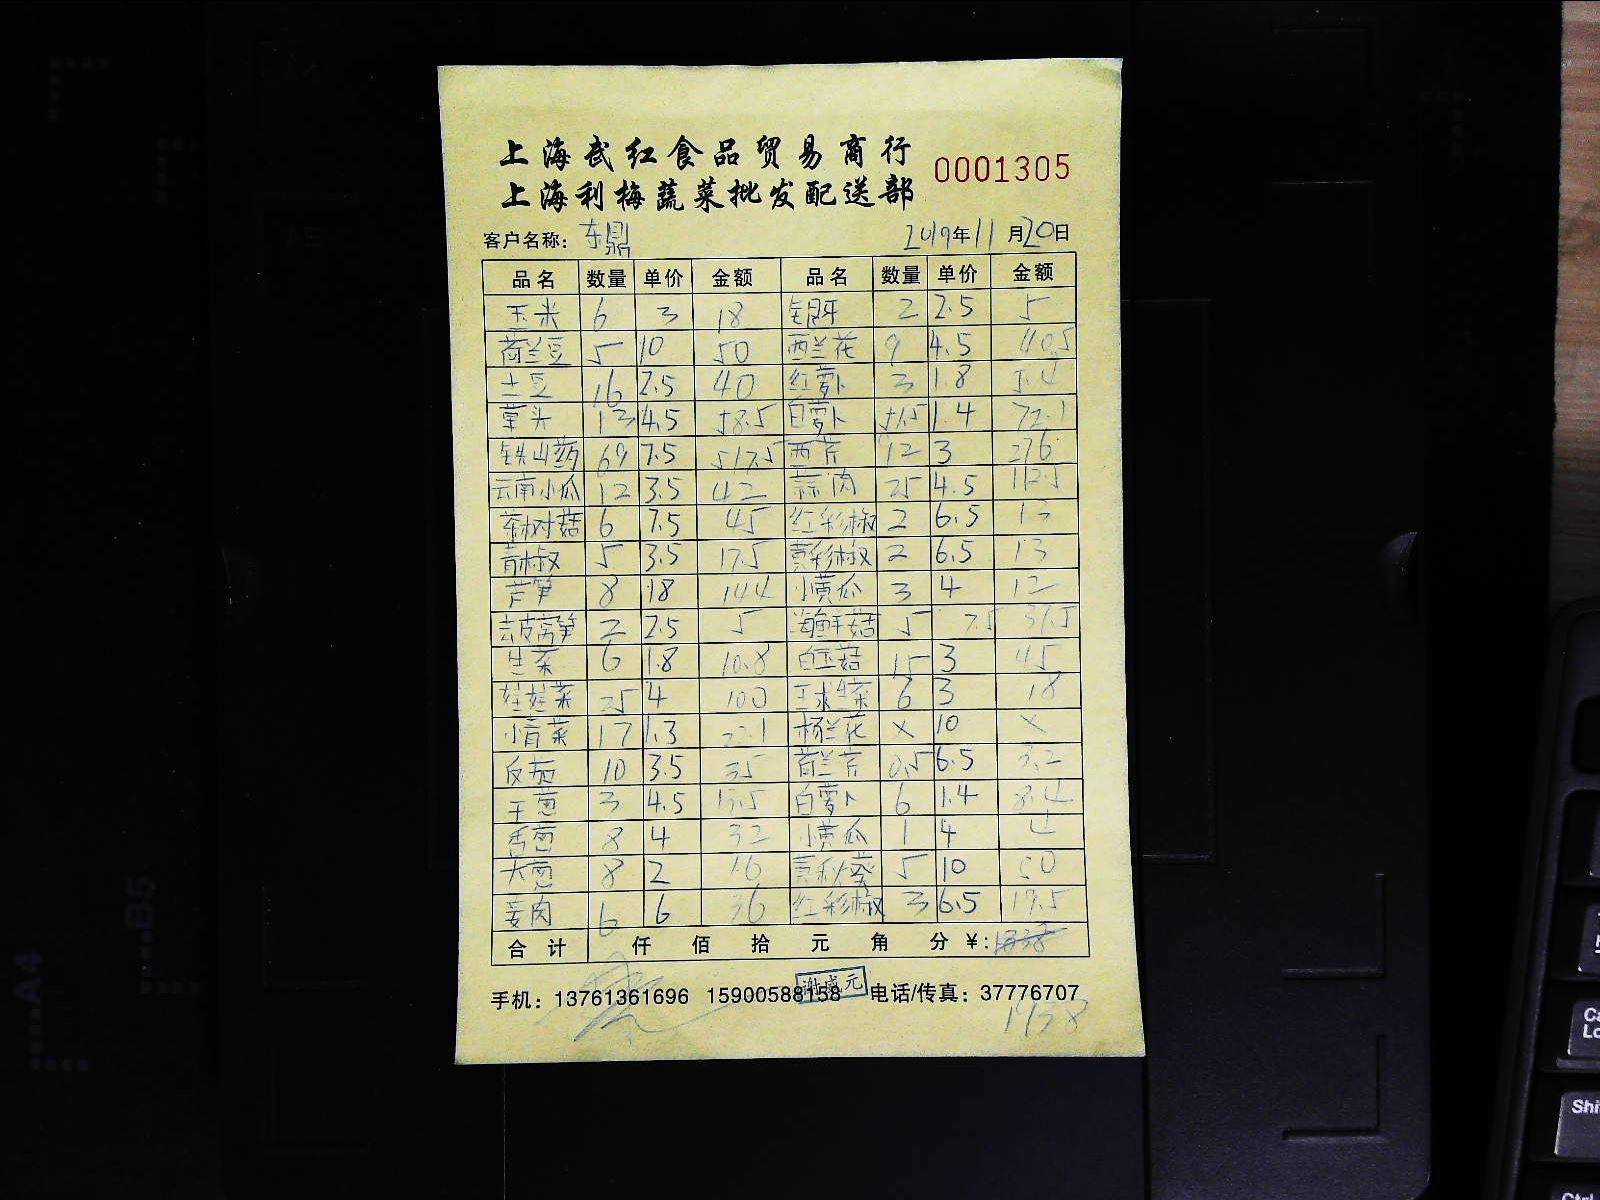 上海武红食品贸易商行
上海利梅蔬菜批发配送部
0001305
客户名称：东鼎 2019年11月20日
品名 数量 单价 金额 品名 数量 单价 金额
玉米 6 3 18 银牙 2 2.5 5
荷兰豆 5 10 50 西兰花 9 4.5 40.5
土豆 16 2.5 40 红萝卜 3 1.8 5.4
草头 13 4.5 58.5 白萝卜 51.5 1.4 72.1
铁山药 69 7.5 517.5 西芹 12 3 276
云南小瓜 12 3.5 42 蒜肉 25 4.5 112.5
茶树菇 6 7.5 45 红彩椒 2 6.5 13
青椒 5 3.5 17.5 黄彩椒 2 6.5 13
芦笋 8 18 144 小黄瓜 3 4 12
去皮窝笋 2 2.5 5 海鲜菇 5 7.5 37.5
生菜 6 1.8 10.8 白玉菇 15 3 45
娃娃菜 25 4 100 王求生菜 6 3 18
小青菜 17 1.3 22.1 杨兰花 × 10 ×
反茄 10 3.5 35 荷兰芹 0.5 6.5 3.2
王葱 3 4.5 13.5 白萝卜 6 1.4 8.4
香葱 8 4 32 小黄瓜 1 4 4
大葱 8 2 16 黄秋葵 5 10 50
姜肉 6 6 36 红彩椒 3 6.5 19.5
合计 仟 佰 拾 元 角 分 ¥:
手机：13761361696 15900588158 电话/传真：37776707
谢成元
1938
A4
B5
Shi
Ctrl